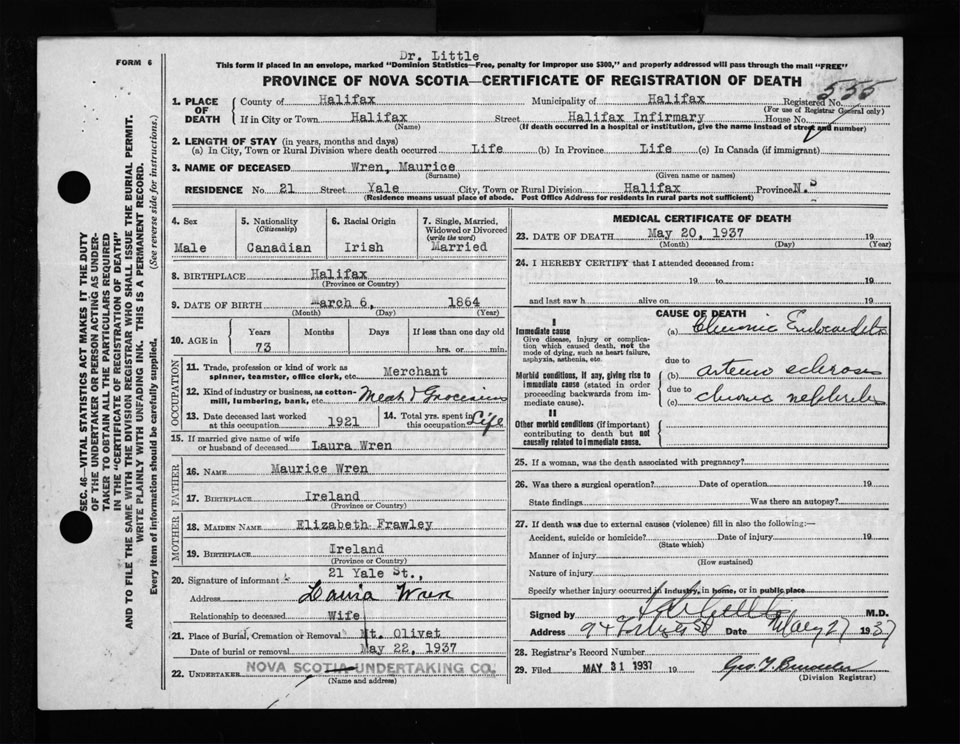 Dr. Little
FORM 6
This form if placed in an envelope, marked "Dominion Statistics—Free, penalty for improper use $300," and properly addressed will pass through the mail "FREE"
PROVINCE OF NOVA SCOTIA—CERTIFICATE OF REGISTRATION OF DEATH
555
1. PLACE OF DEATH
County of Halifax Municipality of Halifax Registered No.
(For use of Registrar General only)
If in City or Town Halifax Street Halifax Infirmary House No.
(Name) (If death occurred in a hospital or institution, give the name instead of street and number)
2. LENGTH OF STAY (in years, months and days)
(a) In City, Town or Rural Division where death occurred Life (b) In Province Life (c) In Canada (if immigrant)
3. NAME OF DECEASED Wren, Maurice
(Surname) (Given name or names)
RESIDENCE No. 21 Street Yale City, Town or Rural Division Halifax Province N.S
(Residence means usual place of abode. Post Office Address for residents in rural parts not sufficient)
4. Sex
Male
5. Nationality
(Citizenship)
Canadian
6. Racial Origin
Irish
7. Single, Married, Widowed or Divorced
(write the word)
Married
8. BIRTHPLACE Halifax
(Province or Country)
9. DATE OF BIRTH March 6, 1864
(Month) (Day) (Year)
10. AGE in
Years Months Days If less than one day old
73 hrs. or min.
OCCUPATION
11. Trade, profession or kind of work as spinner, teamster, office clerk, etc. Merchant
12. Kind of industry or business, as cotton-mill, lumbering, bank, etc. Meat & Groceries
13. Date deceased last worked at this occupation 1921
14. Total yrs. spent in this occupation Life
15. If married give name of wife or husband of deceased Laura Wren
FATHER
16. NAME Maurice Wren
17. BIRTHPLACE Ireland
(Province or Country)
MOTHER
18. MAIDEN NAME Elizabeth Frawley
19. BIRTHPLACE Ireland
(Province or Country)
21 Yale St.,
20. Signature of informant
Address Laura Wren
Relationship to deceased Wife
21. Place of Burial, Cremation or Removal Mt. Olivet
Date of burial or removal May 22, 1937
22. UNDERTAKER NOVA SCOTIA UNDERTAKING CO.
(Name and address)
MEDICAL CERTIFICATE OF DEATH
23. DATE OF DEATH May 20, 1937 19
(Month) (Day) (Year)
24. I HEREBY CERTIFY that I attended deceased from:
19 to 19
and last saw h alive on 19
CAUSE OF DEATH
I
Immediate cause
Give disease, injury or complication which caused death, not the mode of dying, such as heart failure, asphyxia, asthenia, etc.
(a) Chronic
due to
Morbid conditions, if any, giving rise to immediate cause (stated in order proceeding backwards from immediate cause).
(b) arterio sclerosis
due to
(c) chronic nephritis
II
Other morbid conditions (if important) contributing to death but not causally related to immediate cause.
25. If a woman, was the death associated with pregnancy?
26. Was there a surgical operation? Date of operation 19
State findings Was there an autopsy?
27. If death was due to external causes (violence) fill in also the following:—
Accident, suicide or homicide? Date of injury 19
(State which)
Manner of injury
(How sustained)
Nature of injury
Specify whether injury occurred in industry, in home, or in public place
Signed by M.D.
Address 94 Date May 27 1937
28. Registrar's Record Number
29. Filed MAY 31 1937 19
(Division Registrar)
SEC. 46—VITAL STATISTICS ACT MAKES IT THE DUTY
OF THE UNDERTAKER OR PERSON ACTING AS UNDER-
TAKER TO OBTAIN ALL THE PARTICULARS REQUIRED
IN THE "CERTIFICATE OF REGISTRATION OF DEATH"
AND TO FILE THE SAME WITH THE DIVISION REGISTRAR WHO SHALL ISSUE THE BURIAL PERMIT.
WRITE PLAINLY WITH UNFADING INK. THIS IS A PERMANENT RECORD.
Every item of information should be carefully supplied. (See reverse side for instructions.)